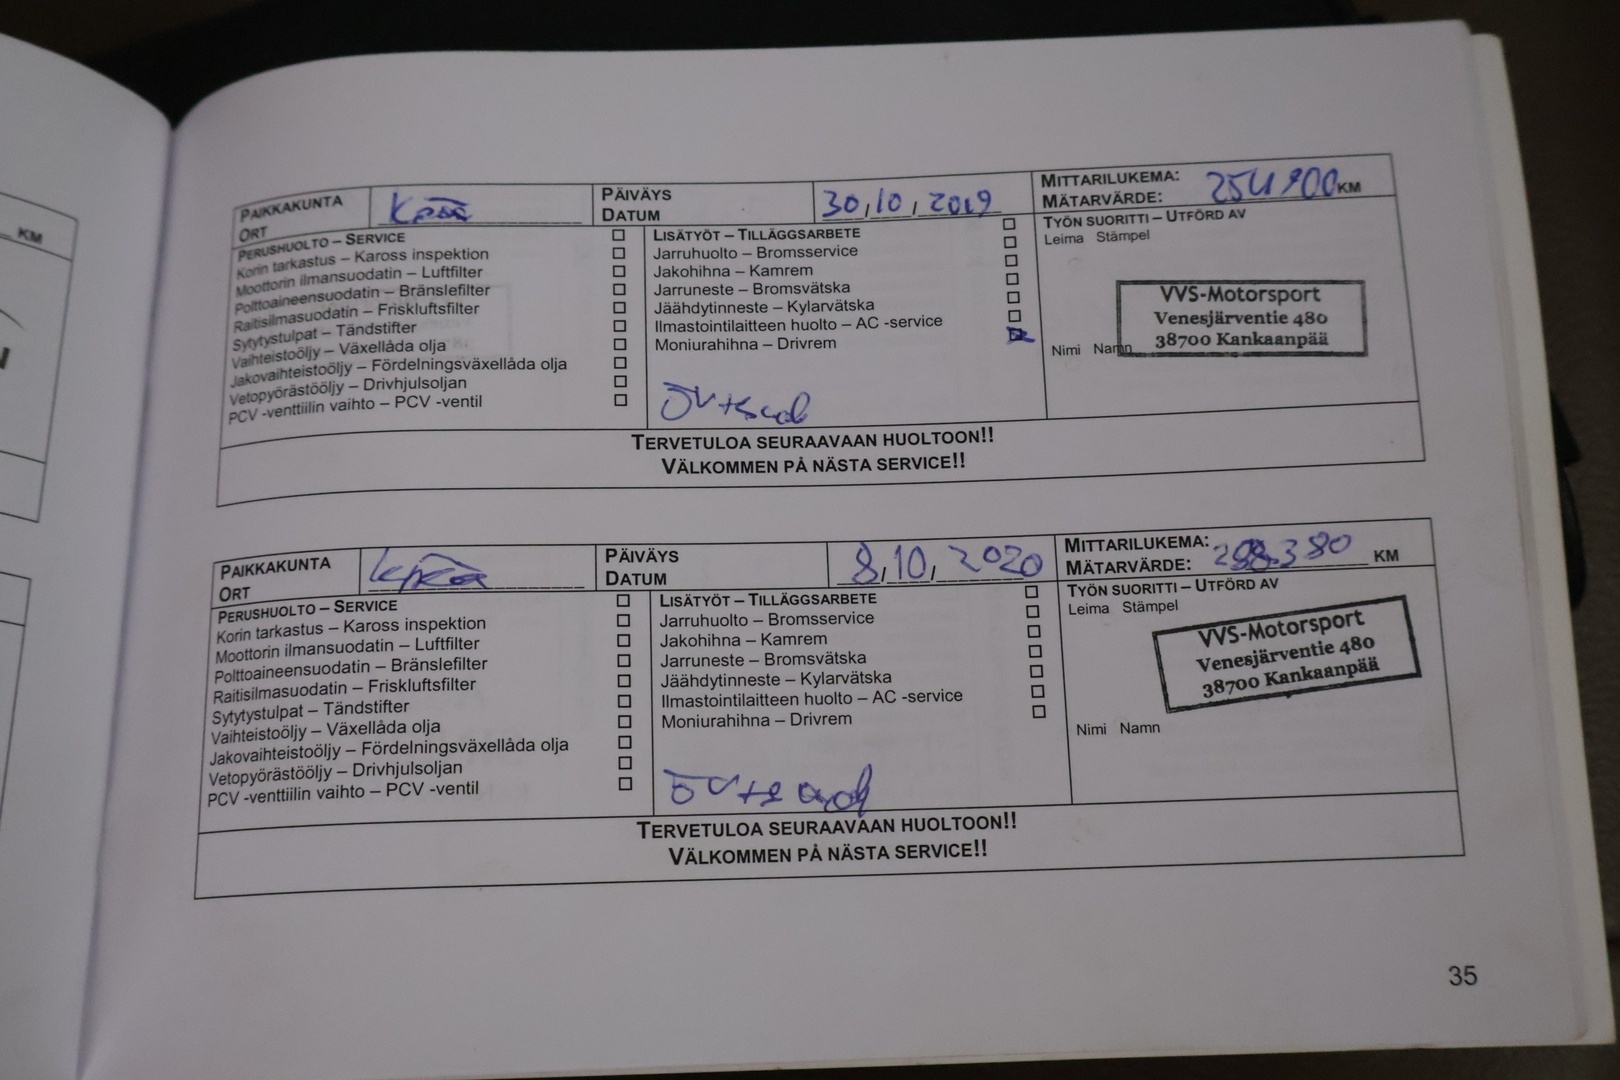 KM
PAIKKAKUNTA
ORT
PÄIVÄYS
DATUM
30,10,2019
MITTARILUKEMA:
MÄTARVÄRDE:
KM
PERUSHUOLTO – SERVICE
Korin tarkastus – Kaross inspektion
Moottorin ilmansuodatin – Luftfilter
Polttoaineensuodatin – Bränslefilter
Raitisilmasuodatin – Friskluftsfilter
Sytytystulpat – Tändstifter
Vaihteistoöljy – Växellåda olja
Jakovaihteistoöljy – Fördelningsväxellåda olja
Vetopyörästööljy – Drivhjulsoljan
PCV -venttiilin vaihto – PCV -ventil
LISÄTYÖT – TILLÄGGSARBETE
Jarruhuolto – Bromsservice
Jakohihna – Kamrem
Jarruneste – Bromsvätska
Jäähdytinneste – Kylarvätska
Ilmastointilaitteen huolto – AC -service
Moniurahihna – Drivrem
TYÖN SUORITTI – UTFÖRD AV
Leima Stämpel
VVS-Motorsport
Venesjärventie 480
38700 Kankaanpää
Nimi Namn
TERVETULOA SEURAAVAAN HUOLTOON!!
VÄLKOMMEN PÅ NÄSTA SERVICE!!
PAIKKAKUNTA
ORT
PÄIVÄYS
DATUM
8,10,2020
MITTARILUKEMA:
MÄTARVÄRDE:
KM
PERUSHUOLTO – SERVICE
Korin tarkastus – Kaross inspektion
Moottorin ilmansuodatin – Luftfilter
Polttoaineensuodatin – Bränslefilter
Raitisilmasuodatin – Friskluftsfilter
Sytytystulpat – Tändstifter
Vaihteistoöljy – Växellåda olja
Jakovaihteistoöljy – Fördelningsväxellåda olja
Vetopyörästööljy – Drivhjulsoljan
PCV -venttiilin vaihto – PCV -ventil
LISÄTYÖT – TILLÄGGSARBETE
Jarruhuolto – Bromsservice
Jakohihna – Kamrem
Jarruneste – Bromsvätska
Jäähdytinneste – Kylarvätska
Ilmastointilaitteen huolto – AC -service
Moniurahihna – Drivrem
TYÖN SUORITTI – UTFÖRD AV
Leima Stämpel
VVS-Motorsport
Venesjärventie 480
38700 Kankaanpää
Nimi Namn
TERVETULOA SEURAAVAAN HUOLTOON!!
VÄLKOMMEN PÅ NÄSTA SERVICE!!
35